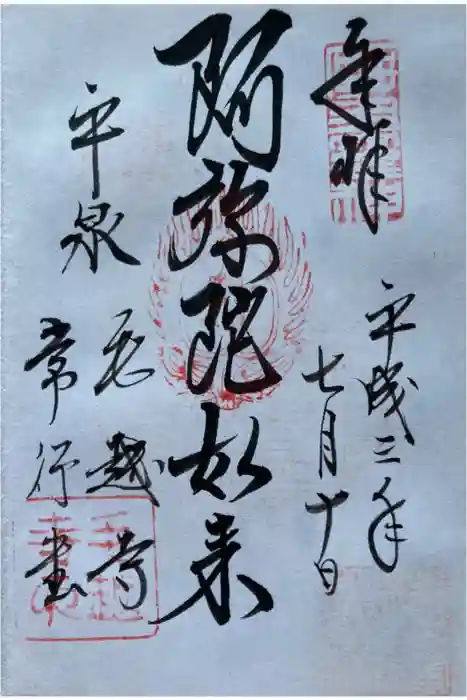 奉拝
平成三年
七月十日
阿弥陀如来
平泉
毛越寺
常行堂